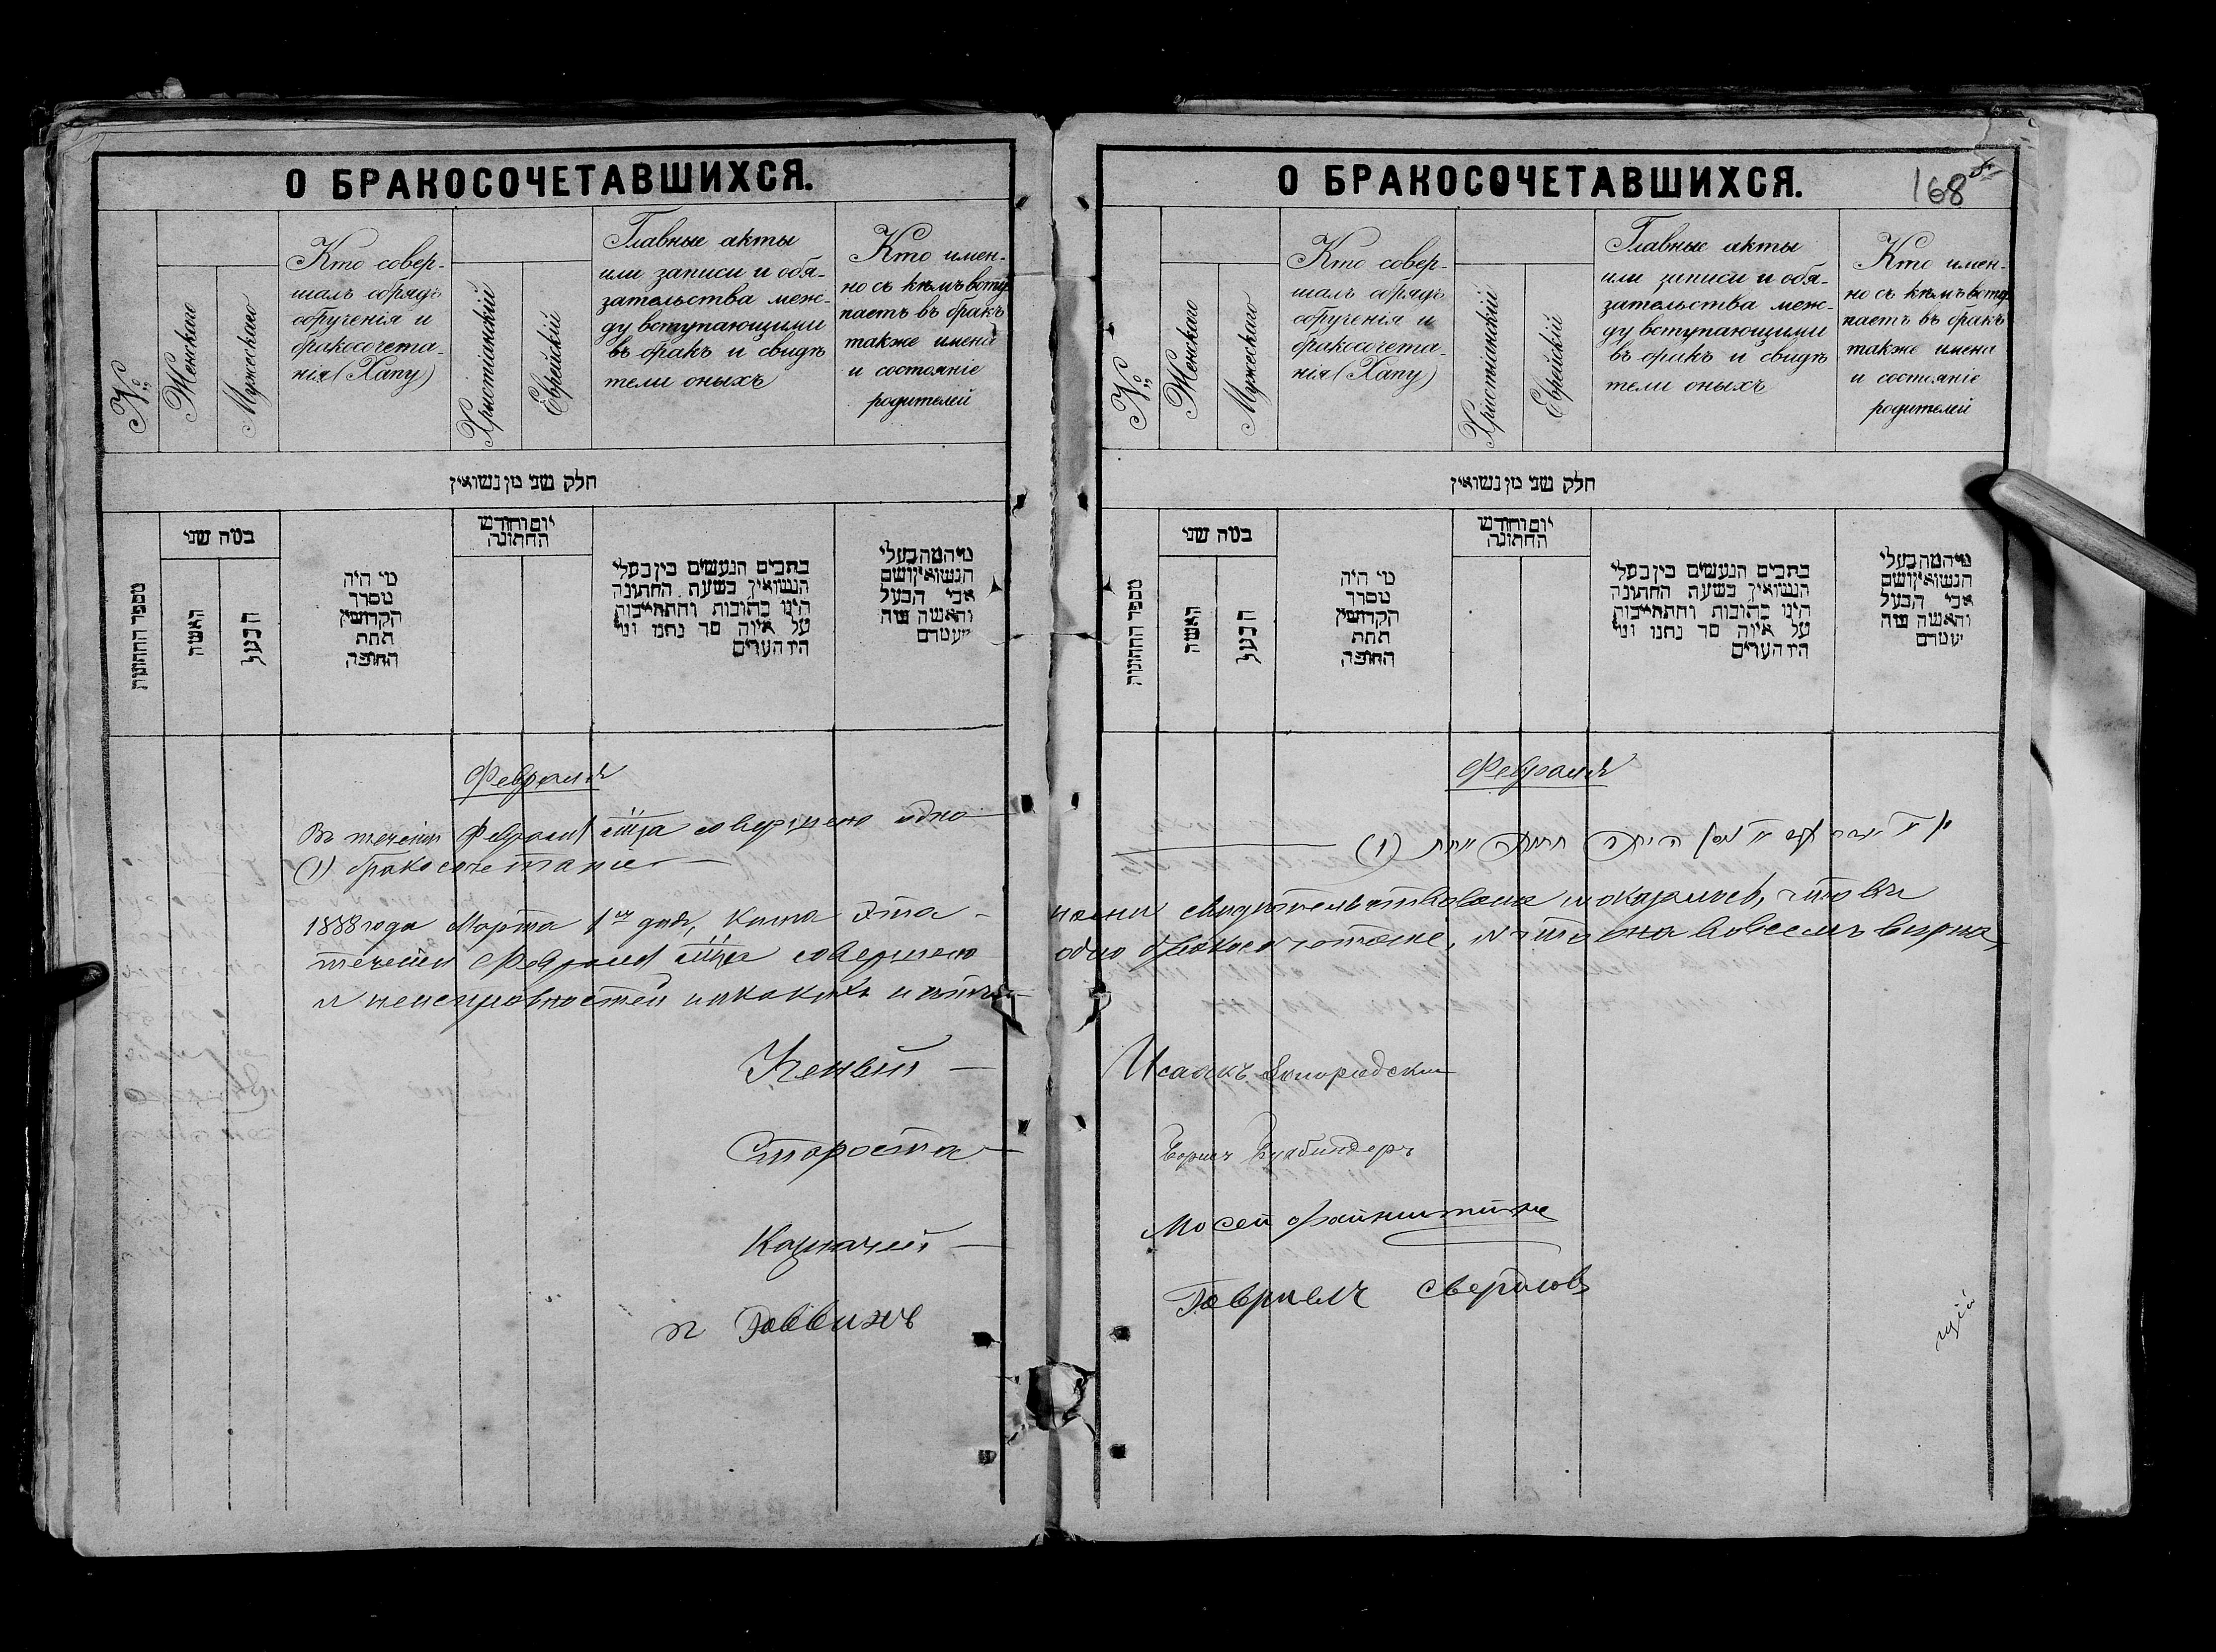 О БРАКОСОЧЕТАВШИХСЯ.
№
Женскаго
Мужескаго
Кто совер-
шалъ обрядъ
обрученія и
бракосочета-
нія (Хапу)
Христіанскій
Еврейскій
Главные акты
или записи и обя-
зательства меж-
ду вступающими
въ бракъ и свидѣ
тели оныхъ
Кто имен-
но съ кѣмъ всту
паетъ въ бракъ
также имена
и состояніе
родителей
חלק שני מן נשואין
מספר החתונות
כמה שני
האשה
הבעל
מי היה
מסדר
הקדושין
תחת
החופה
יום וחודש
החתונה
כתבים הנעשים בין בעלי
הנשואין בשעת החתונה
היינו כתובות והתחייבות
על איזה סך נתנו ומי
היו העדים
מי המה בעלי
הנשואין ושם
אבי הבעל
והאשה ומה
מעמדם
Февраля
Въ теченіи Февраля мца совершено одно
(1) бракосочетание
1888 года Марта 1го дня, книга эта
течении Февраля мца совершено
и неисправностей никакихъ
Ученый
Староста
Казначей
и Раввинъ
О БРАКОСОЧЕТАВШИХСЯ.
168
№
Женскаго
Мужескаго
Кто совер-
шалъ обрядъ
обрученія и
бракосочета-
нія (Хапу)
Христіанскій
Еврейскій
Главные акты
или записи и обя-
зательства меж-
ду вступающими
въ бракъ и свидѣ
тели оныхъ
Кто имен-
но съ кѣмъ всту
паетъ въ бракъ
также имена
и состояніе
родителей
חלק שני מן נשואין
מספר החתונות
כמה שני
האשה
הבעל
מי היה
מסדר
הקדושין
תחת
החופה
יום וחודש
החתונה
כתבים הנעשים בין בעלי
הנשואין בשעת החתונה
היינו כתובות והתחייבות
על איזה סך נתנו ומי
היו העדים
מי המה בעלי
הנשואין ושם
אבי הבעל
והאשה ומה
מעמדם
Февраля
היתה חתונה אחת (1)
нами свидѣтельствована и оказалось, что въ
одно бракосочетание, и что она вовсемъ вѣрна,
Исаакъ
Мосей Файнштейнъ
Гавриелъ Свердловъ